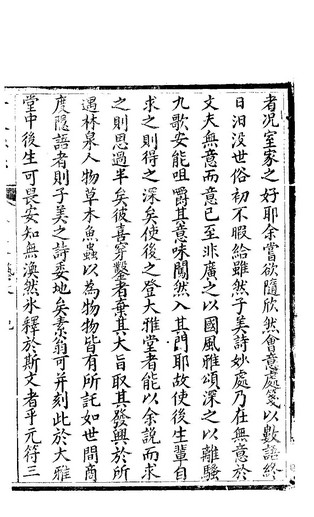 者况室家之好耶余嘗欲隨欣然會意處箋以數語終
日汨没世俗初不暇給雖然子美詩妙處乃在無意於
文夫無意而意已至非廣之以國風雅頌深之以離騷
九歌安能咀嚼其意味闖然入其門耶故使後生輩自
求之則得之深矣使後之登大雅堂者能以余說而求
之則思過半矣彼喜穿鑿者棄其大旨取其發興於所
遇林泉人物草木魚蟲以為物物皆有所託如世間商
度隱語者則子美之詩委地矣素翁可并刻此於大雅
堂中後生可畏安知無渙然冰釋於斯文者乎元符三